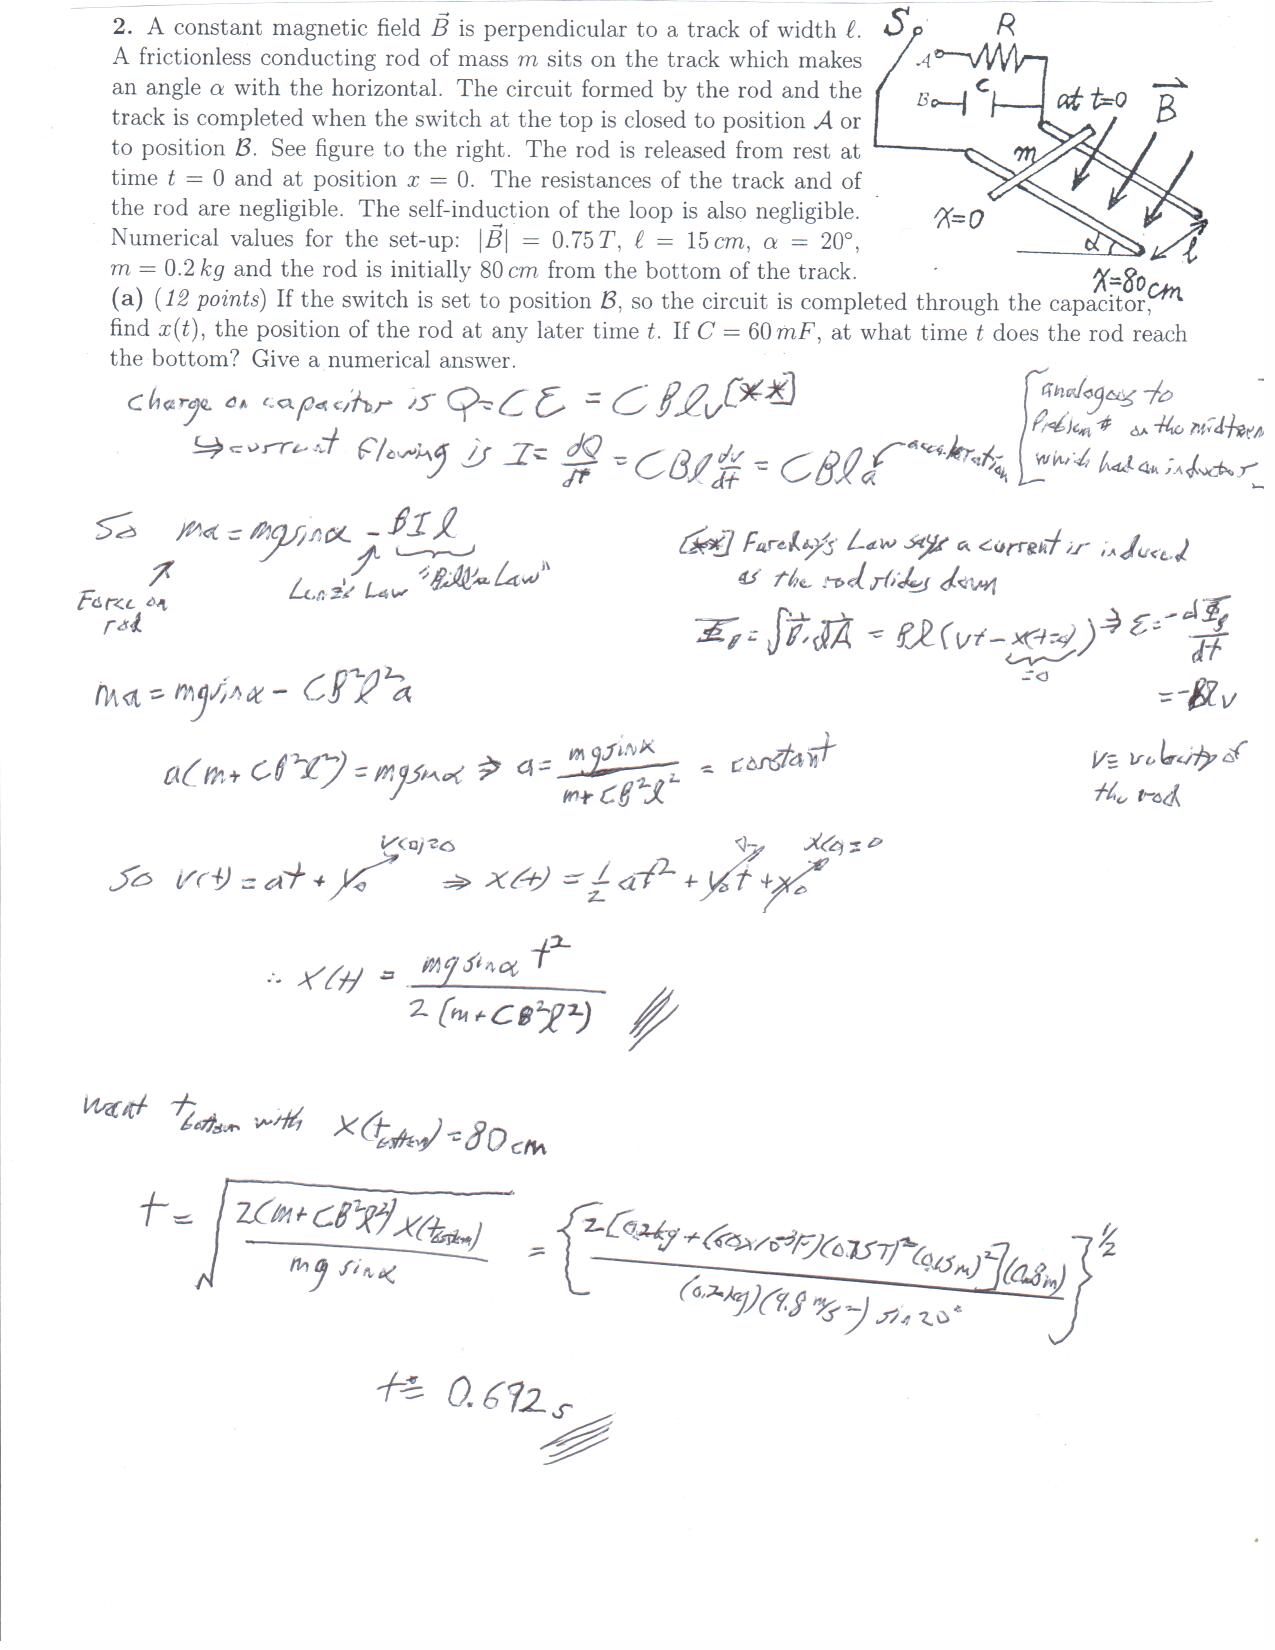 2. A constant magnetic field B⃗ is perpendicular to a track of width ℓ.
A frictionless conducting rod of mass m sits on the track which makes
an angle α with the horizontal. The circuit formed by the rod and the
track is completed when the switch at the top is closed to position A or
to position B. See figure to the right. The rod is released from rest at
time t = 0 and at position x = 0. The resistances of the track and of
the rod are negligible. The self-induction of the loop is also negligible.
Numerical values for the set-up: |B⃗| = 0.75 T, ℓ = 15 cm, α = 20°,
m = 0.2 kg and the rod is initially 80 cm from the bottom of the track.
S R
A
B C
at t=0 B⃗
m
x=0
α ℓ
x=80cm
(a) (12 points) If the switch is set to position B, so the circuit is completed through the capacitor,
find x(t), the position of the rod at any later time t. If C = 60 mF, at what time t does the rod reach
the bottom? Give a numerical answer.
Charge on capacitor is Q=Cℰ = CBℓv [**]
↳ current flowing is I = dQ/dt = CBℓ dv/dt = CBℓa ← acceleration
[analogous to
Problem # on the midterm
which had an inductor]
So ma = mg sinα - BIℓ
Force on
rod
Lenz's Law "Bill's Law"
[**] Faraday's Law says a current is induced
as the rod slides down
Φ_B = ∫B⃗·dA⃗ = Bℓ(vt - x(t=0)) ⇒ ℰ = -dΦ_B/dt
=0
= -Bℓv
ma = mg sinα - CB²ℓ²a
v ≡ velocity of
the rod
a(m + CB²ℓ²) = mg sinα ⇒ a = mg sinα / (m + CB²ℓ²) = constant
v(0)=0 x(0)=0
So v(t) = at + v₀ ⇒ x(t) = ½ at² + v₀t + x₀
∴ x(t) = mg sinα t² / 2(m + CB²ℓ²)
want t_bottom with x(t_bottom) = 80cm
t = √(2(m + CB²ℓ²) x(t_bottom) / mg sinα) = {2[0.2kg + (60×10⁻³F)(0.75T)²(0.15m)²](0.8m) / (0.2kg)(9.8 m/s²) sin20°}^½
t = 0.692 s